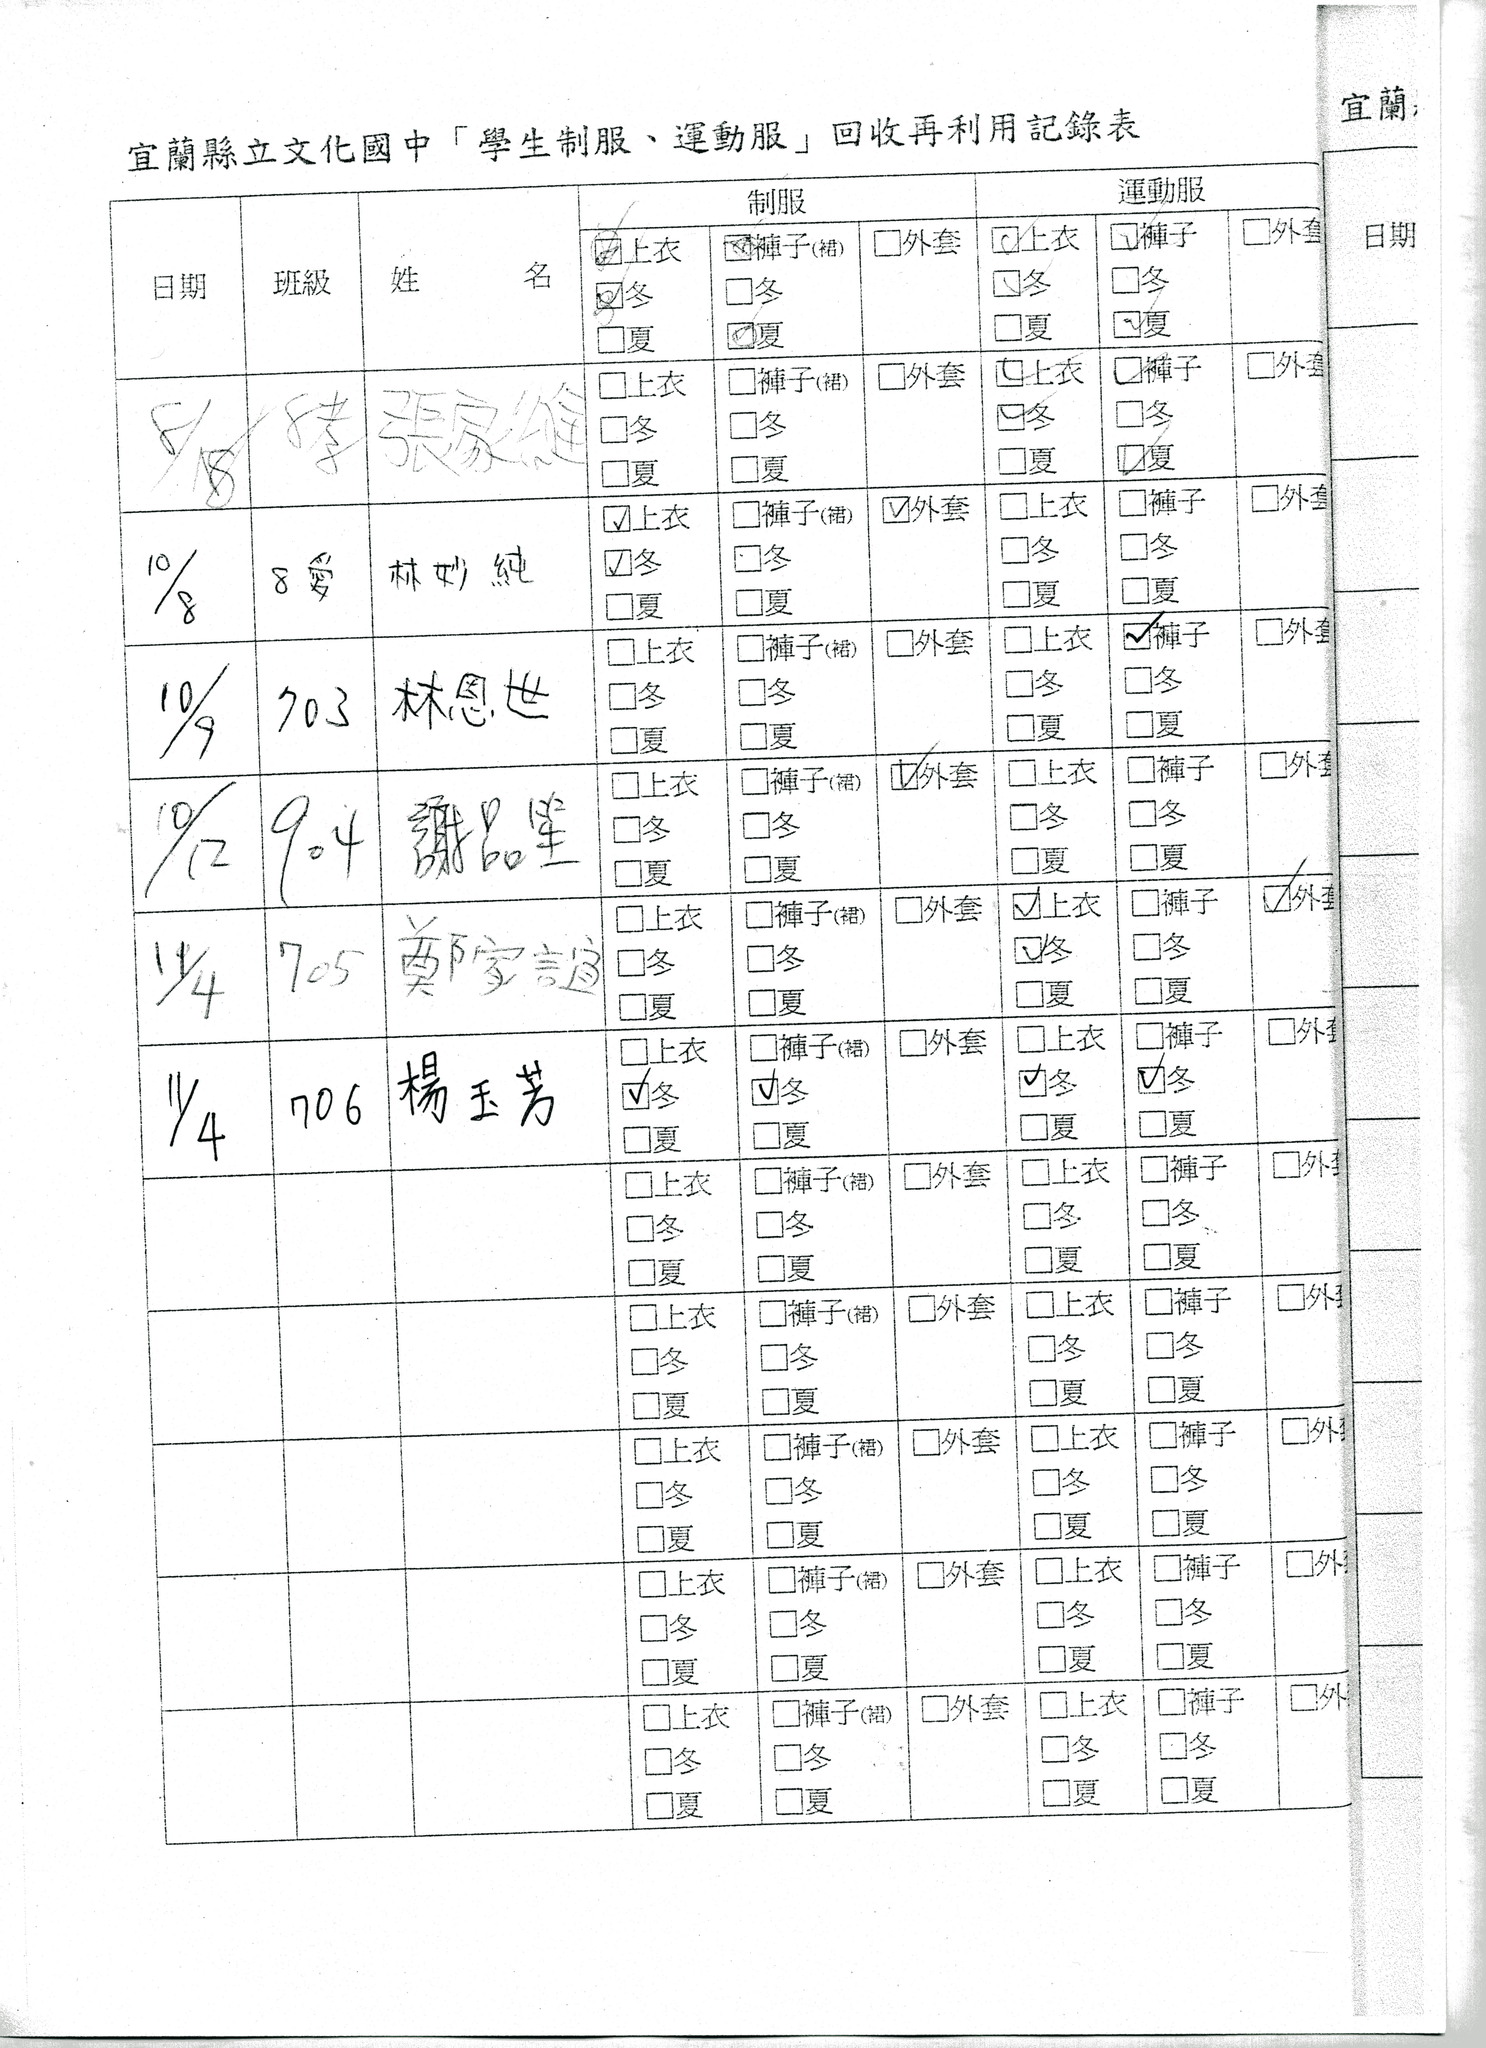 宜蘭縣立文化國中「學生制服、運動服」回收再利用記錄表
日期 班級 姓 名 制服 運動服
☑上衣 ☑褲子(裙) □外套 ☑上衣 ☑褲子 □外套
☑冬 □冬 ☑冬 □冬
□夏 ☑夏 □夏 ☑夏
8/18 8孝 張家維
□上衣 □褲子(裙) □外套 ☑上衣 ☑褲子 □外套
□冬 □冬 ☑冬 □冬
□夏 □夏 □夏 ☑夏
10/8 8愛 林妙純
☑上衣 □褲子(裙) ☑外套 □上衣 □褲子 □外套
☑冬 □冬 □冬 □冬
□夏 □夏 □夏 □夏
10/9 703 林恩世
□上衣 □褲子(裙) □外套 □上衣 ☑褲子 □外套
□冬 □冬 □冬 □冬
□夏 □夏 □夏 □夏
10/12 904 謝品
□上衣 □褲子(裙) ☑外套 □上衣 □褲子 □外套
□冬 □冬 □冬 □冬
□夏 □夏 □夏 □夏
11/4 705 鄭家誼
□上衣 □褲子(裙) □外套 ☑上衣 □褲子 ☑外套
□冬 □冬 ☑冬 □冬
□夏 □夏 □夏 □夏
11/4 706 楊玉芳
□上衣 □褲子(裙) □外套 □上衣 □褲子 □外套
☑冬 ☑冬 ☑冬 ☑冬
□夏 □夏 □夏 □夏
□上衣 □褲子(裙) □外套 □上衣 □褲子 □外
□冬 □冬 □冬 □冬
□夏 □夏 □夏 □夏
□上衣 □褲子(裙) □外套 □上衣 □褲子 □外
□冬 □冬 □冬 □冬
□夏 □夏 □夏 □夏
□上衣 □褲子(裙) □外套 □上衣 □褲子 □外
□冬 □冬 □冬 □冬
□夏 □夏 □夏 □夏
□上衣 □褲子(裙) □外套 □上衣 □褲子 □外
□冬 □冬 □冬 □冬
□夏 □夏 □夏 □夏
□上衣 □褲子(裙) □外套 □上衣 □褲子 □外
□冬 □冬 □冬 □冬
□夏 □夏 □夏 □夏
宜蘭
日期